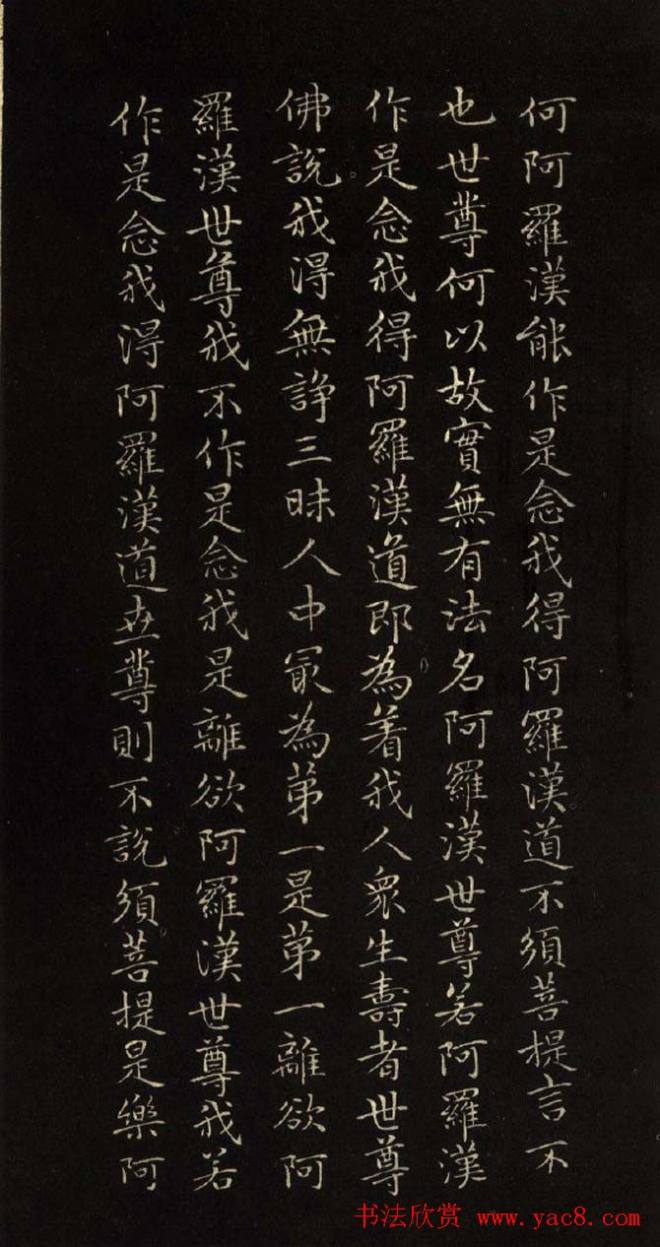 何阿羅漢能作是念我得阿羅漢道不須菩提言不
也世尊何以故實無有法名阿羅漢世尊若阿羅漢
作是念我得阿羅漢道即為着我人衆生壽者世尊
佛說我淂無諍三昧人中冣為苐一是苐一離欲阿
羅漢世尊我不作是念我是離欲阿羅漢世尊我若
作是念我淂阿羅漢道世尊則不說須菩提是樂阿
书法欣赏 www.yac8.com